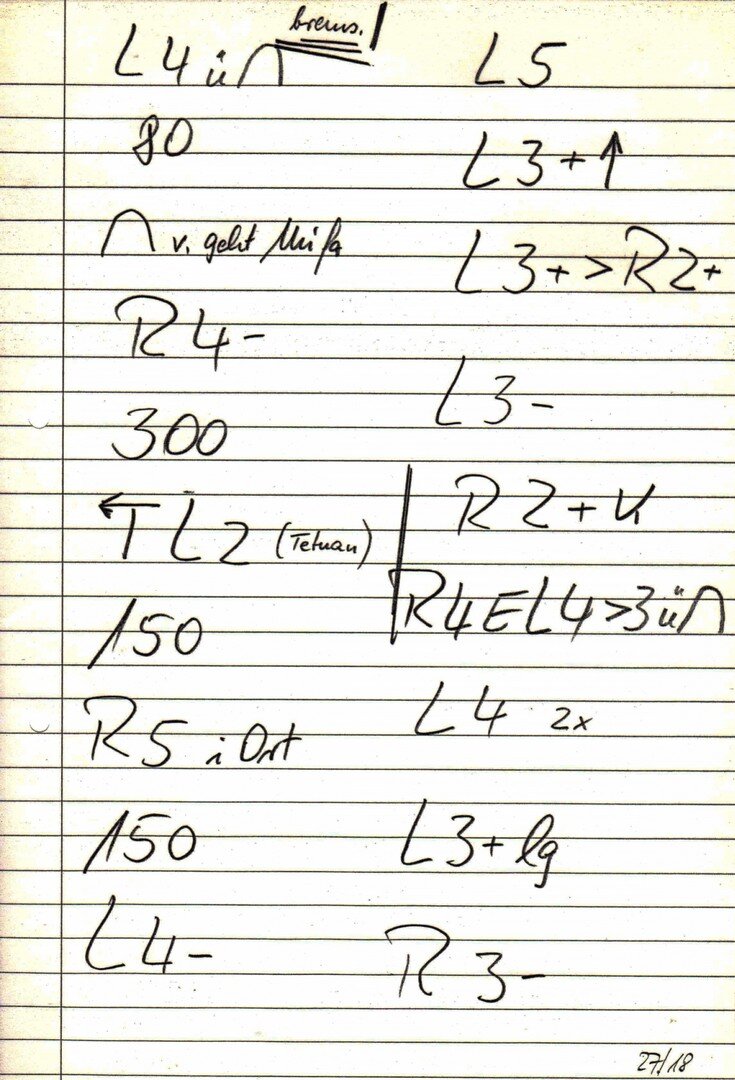 brems.!
L4 ü ∩
80
∩ v. geht
R4-
300
← T L2 (Tetuan)
150
R5 i Ort
150
L4-
L5
L3+↑
L3+>R2+
L3-
R2+ K
R4EL4>3ü∩
L4 2x
L3+ lg
R3-
27/18